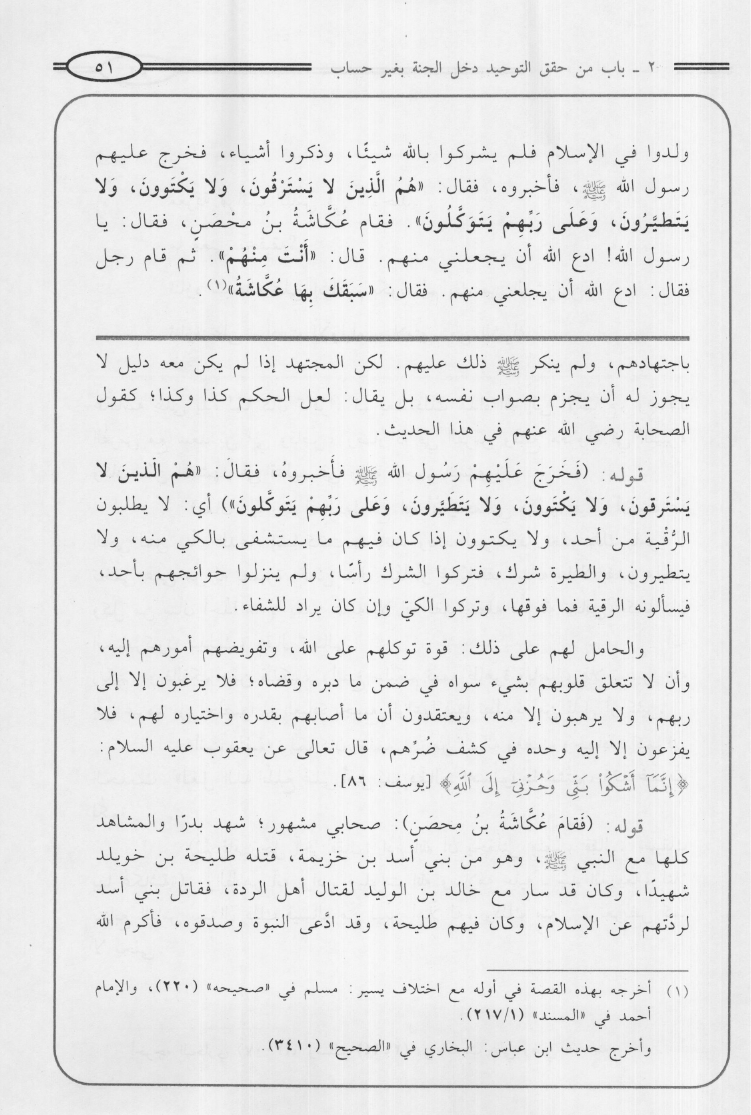 ٢ ـ باب من حقق التوحيد دخل الجنة بغير حساب
٥١
ولدوا في الإسلام فلم يشركوا بالله شيئًا، وذكروا أشياء، فخرج عليهم
رسول الله ﷺ، فأخبروه، فقال: «هُمُ الَّذِينَ لا يَسْتَرْقُونَ، وَلا يَكْتَوونَ، وَلا
يَتَطيَّرُونَ، وَعَلَى رَبِّهِمْ يَتَوَكَّلُونَ». فقام عُكَّاشَةُ بنُ محْصَنٍ، فقال: يا
رسول الله! ادع الله أن يجعلني منهم. قال: «أَنْتَ مِنْهُمْ». ثم قام رجل
فقال: ادع الله أن يجلعني منهم. فقال: «سَبَقَكَ بِهَا عُكَّاشَةُ»(١).
باجتهادهم، ولم ينكر ﷺ ذلك عليهم. لكن المجتهد إذا لم يكن معه دليل لا
يجوز له أن يجزم بصواب نفسه، بل يقال: لعل الحكم كذا وكذا؛ كقول
الصحابة رضي الله عنهم في هذا الحديث.
قوله: (فَخَرَجَ عَلَيْهِمْ رَسُول الله ﷺ فأَخبروهُ، فقالَ: «هُمْ الَّذينَ لا
يَسْتَرقونَ، وَلا يَكْتَوونَ، وَلا يَتَطَيَّرونَ، وَعَلى رَبِّهِمْ يَتَوكَّلونَ») أي: لا يطلبون
الرُّقْية من أحد، ولا يكتوون إذا كان فيهم ما يستشفى بالكي منه، ولا
يتطيرون، والطيرة شرك، فتركوا الشرك رأسًا، ولم ينزلوا حوائجهم بأحد،
فيسألونه الرقية فما فوقها، وتركوا الكيّ وإن كان يراد للشفاء.
والحامل لهم على ذلك: قوة توكلهم على الله، وتفويضهم أمورهم إليه،
وأن لا تتعلق قلوبهم بشيء سواه في ضمن ما دبره وقضاه؛ فلا يرغبون إلا إلى
ربهم، ولا يرهبون إلا منه، ويعتقدون أن ما أصابهم بقدره واختياره لهم، فلا
يفزعون إلا إليه وحده في كشف ضُرِّهم، قال تعالى عن يعقوب عليه السلام:
﴿إِنَّمَآ أَشْكُواْ بَثِّى وَحُزْنِىٓ إِلَى ٱللَّهِ﴾ [يوسف: ٨٦].
قوله: (فَقامَ عُكَّاشَةُ بنُ مِحصَنٍ): صحابي مشهور؛ شهد بدرًا والمشاهد
كلها مع النبي ﷺ، وهو من بني أسد بن خزيمة، قتله طليحة بن خويلد
شهيدًا، وكان قد سار مع خالد بن الوليد لقتال أهل الردة، فقاتل بني أسد
لردَّتهم عن الإسلام، وكان فيهم طليحة، وقد ادَّعى النبوة وصدقوه، فأكرم الله
(١) أخرجه بهذه القصة في أوله مع اختلاف يسير: مسلم في «صحيحه» (٢٢٠)، والإمام
أحمد في «المسند» (١/ ٢١٧).
وأخرج حديث ابن عباس: البخاري في «الصحيح» (٣٤١٠).